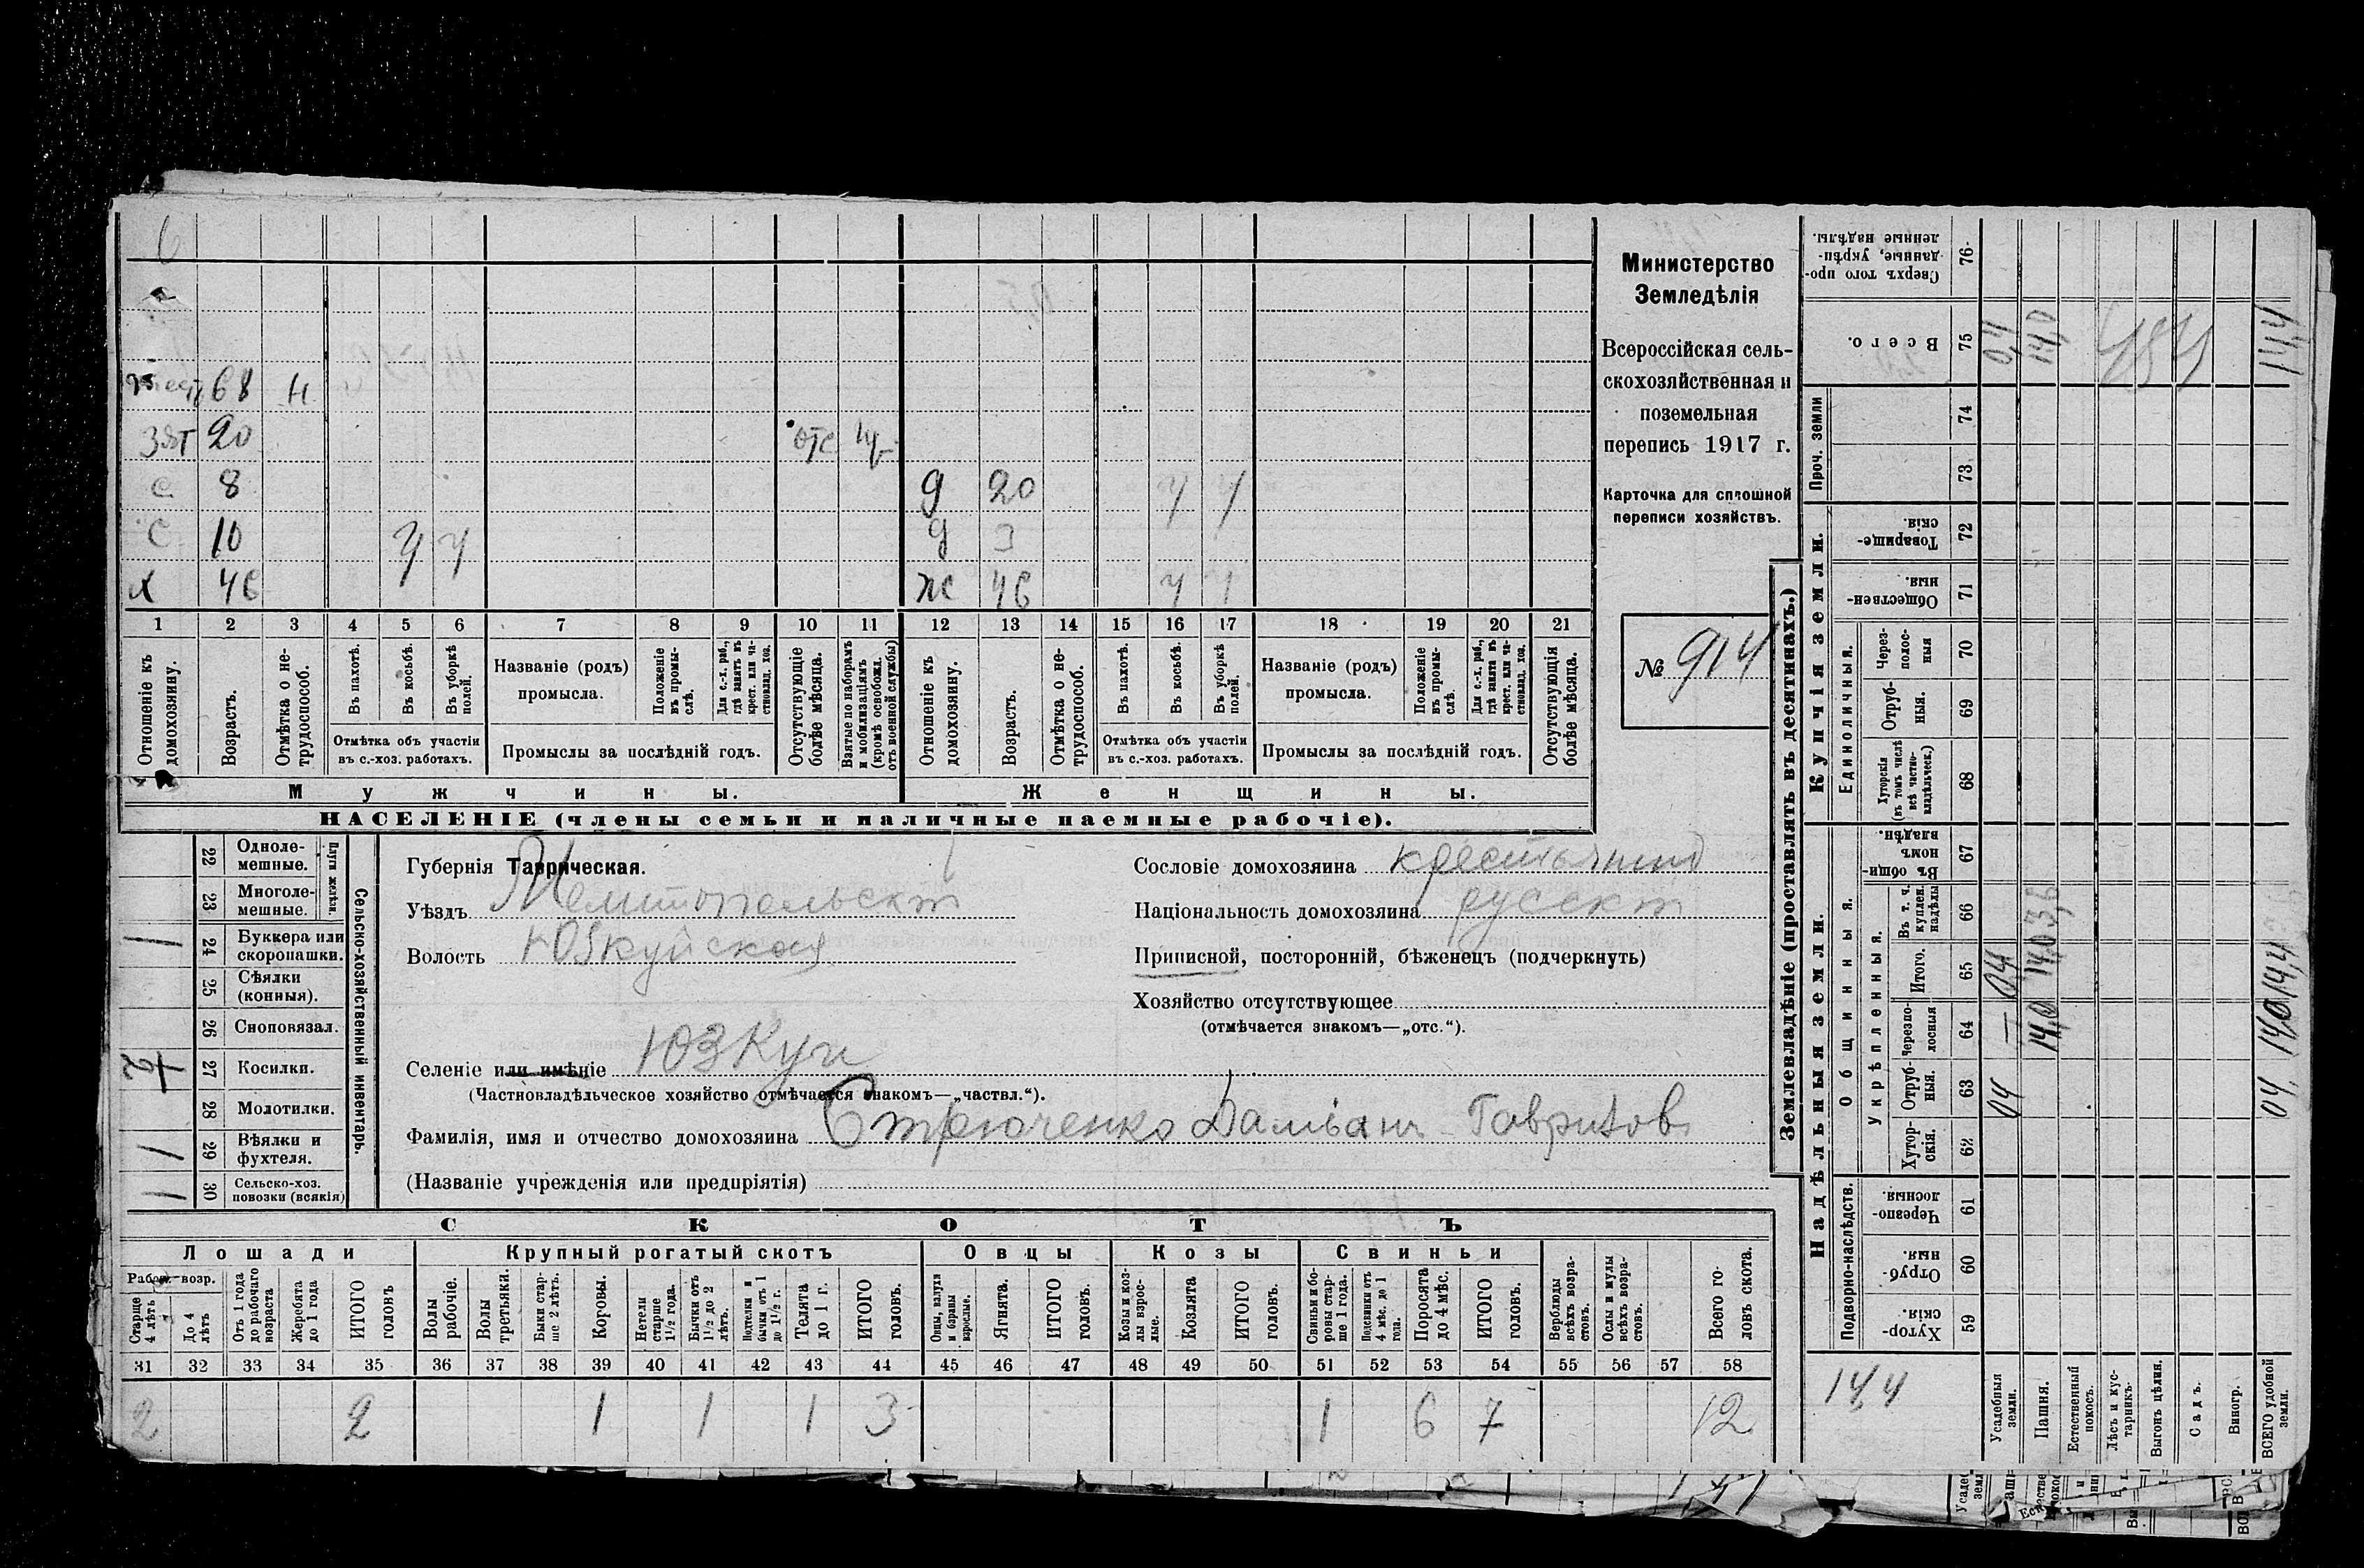 6
тесть 68 Н
зят 20 отс
с 8 д 20 У У
с 10 У У д 3
х 46 ж 46 У У
1 2 3 4 5 6 7 8 9 10 11 12 13 14 15 16 17 18 19 20 21
Отношеніе къ домохозяину.
Возрастъ.
Отмѣтка о не-трудоспособ.
Въ пахотѣ.
Въ косьбѣ.
Въ уборкѣ полей.
Отмѣтка объ участіи
въ с.-хоз. работахъ.
Названіе (родъ)
промысла.
Положеніе въ промы-слѣ.
Для с.-х. раб., гдѣ занятъ въ крест. или ча-стновлад. хоз.
Промыслы за послѣдній годъ.
Отсутствующіе болѣе мѣсяца.
Взятые по наборамъ и мобилизаціямъ (кромѣ освобожд. отъ военной службы)
Отношеніе къ домохозяину.
Возрастъ.
Отмѣтка о не-трудоспособ.
Въ пахотѣ.
Въ косьбѣ.
Въ уборкѣ полей.
Отмѣтка объ участіи
въ с.-хоз. работахъ.
Названіе (родъ)
промысла.
Положеніе въ промы-слѣ.
Для с.-х. раб., гдѣ занята въ крест. или ча-стновлад. хоз.
Промыслы за послѣдній годъ.
Отсутствующія болѣе мѣсяца.
Мужчины. Женщины.
НАСЕЛЕНІЕ (члены семьи и наличные наемные рабочіе).
Министерство
Земледѣлія
Всероссійская сель-
скохозяйственная и
поземельная
перепись 1917 г.
Карточка для сплошной
переписи хозяйствъ.
№ 914
Сельско-хозяйственный инвентарь.
Плуги желѣзн.
22 Одноле-мешные.
23 Многоле-мешные.
1 24 Буккера или скоропашки.
25 Сѣялки (конныя).
26 Сноповязал.
27 Косилки.
28 Молотилки.
1 29 Вѣялки и фухтеля.
1 30 Сельско-хоз. повозки (всякія)
Губернія Таврическая.
Уѣздъ Мелитопольскій
Волость Юзкуйская
Селеніе или имѣніе Юзкуи
(Частновладѣльческое хозяйство отмѣчается знакомъ—„частвл.“).
Фамилія, имя и отчество домохозяина Стрюченко Даміан Гаврилов
(Названіе учрежденія или предпріятія)
Сословіе домохозяина крестьянин
Національность домохозяина русскій
Приписной, посторонній, бѣженецъ (подчеркнуть)
Хозяйство отсутствующее
(отмѣчается знакомъ—„отс.“).
СКОТЪ
Лошади Крупный рогатый скотъ Овцы Козы Свиньи
Рабоч. возр.
Старше 4 лѣтъ
До 4 лѣтъ
Отъ 1 года до рабочаго возраста
Жеребята до 1 года
ИТОГО головъ
Волы рабочіе.
Волы третьяки.
Быки стар-ше 2 лѣтъ.
Коровы.
Нетели старше 1½ года.
Бычки отъ 1½ до 2 лѣтъ.
Подтелки и бычки отъ 1 до 1½ г.
Телята до 1 г.
ИТОГО головъ.
Овцы, валухи и бараны взрослые.
Ягнята.
ИТОГО головъ.
Козы и коз-лы взрос-лые.
Козлята
ИТОГО головъ.
Свиньи и бо-ровы стар-ше 1 года.
Подсвинки отъ 4 мѣс. до 1 года.
Поросята до 4 мѣс.
ИТОГО головъ.
Верблюды всѣхъ возра-стовъ.
Ослы и мулы всѣхъ возра-стовъ.
Всего го-ловъ скота.
31 32 33 34 35 36 37 38 39 40 41 42 43 44 45 46 47 48 49 50 51 52 53 54 55 56 57 58
2 2 1 1 1 3 1 6 7 12
Землевладѣніе (проставлять въ десятинахъ.)
Надѣльныя земли. Купчія земли. Проч. земли
Подворно-наслѣдств.
Общинныя.
Укрѣпленныя.
Единоличныя.
59 Хутор-скія.
60 Отруб-ныя.
61 Черезпо-лосныя.
62 Хутор-скія.
63 Отруб-ныя.
64 Черезпо-лосныя
65 Итого.
66 Въ т. ч. куплен. надѣлы
67 Въ общин-номъ владѣн.
68 Хуторскія (въ томъ числѣ всѣ частно-владѣльческ.)
69 Отруб-ныя.
70 Через-полос-ныя
71 Обществен-ныя.
72 Товарище-скія.
73
74
75 Всего.
76 Сверхъ того про-данные, укрѣп-ленные надѣлы.
14,4
Усадебныя земли. 04 04 0,4
Пашня. 14,0 14,0 3,6 14,0
Естественный покосъ.
Лѣсъ и кус-тарникъ.
Выгонъ цѣлин.
Садъ.
Виногр.
ВСЕГО удобной земли. 04 14,0 14,4 14,4